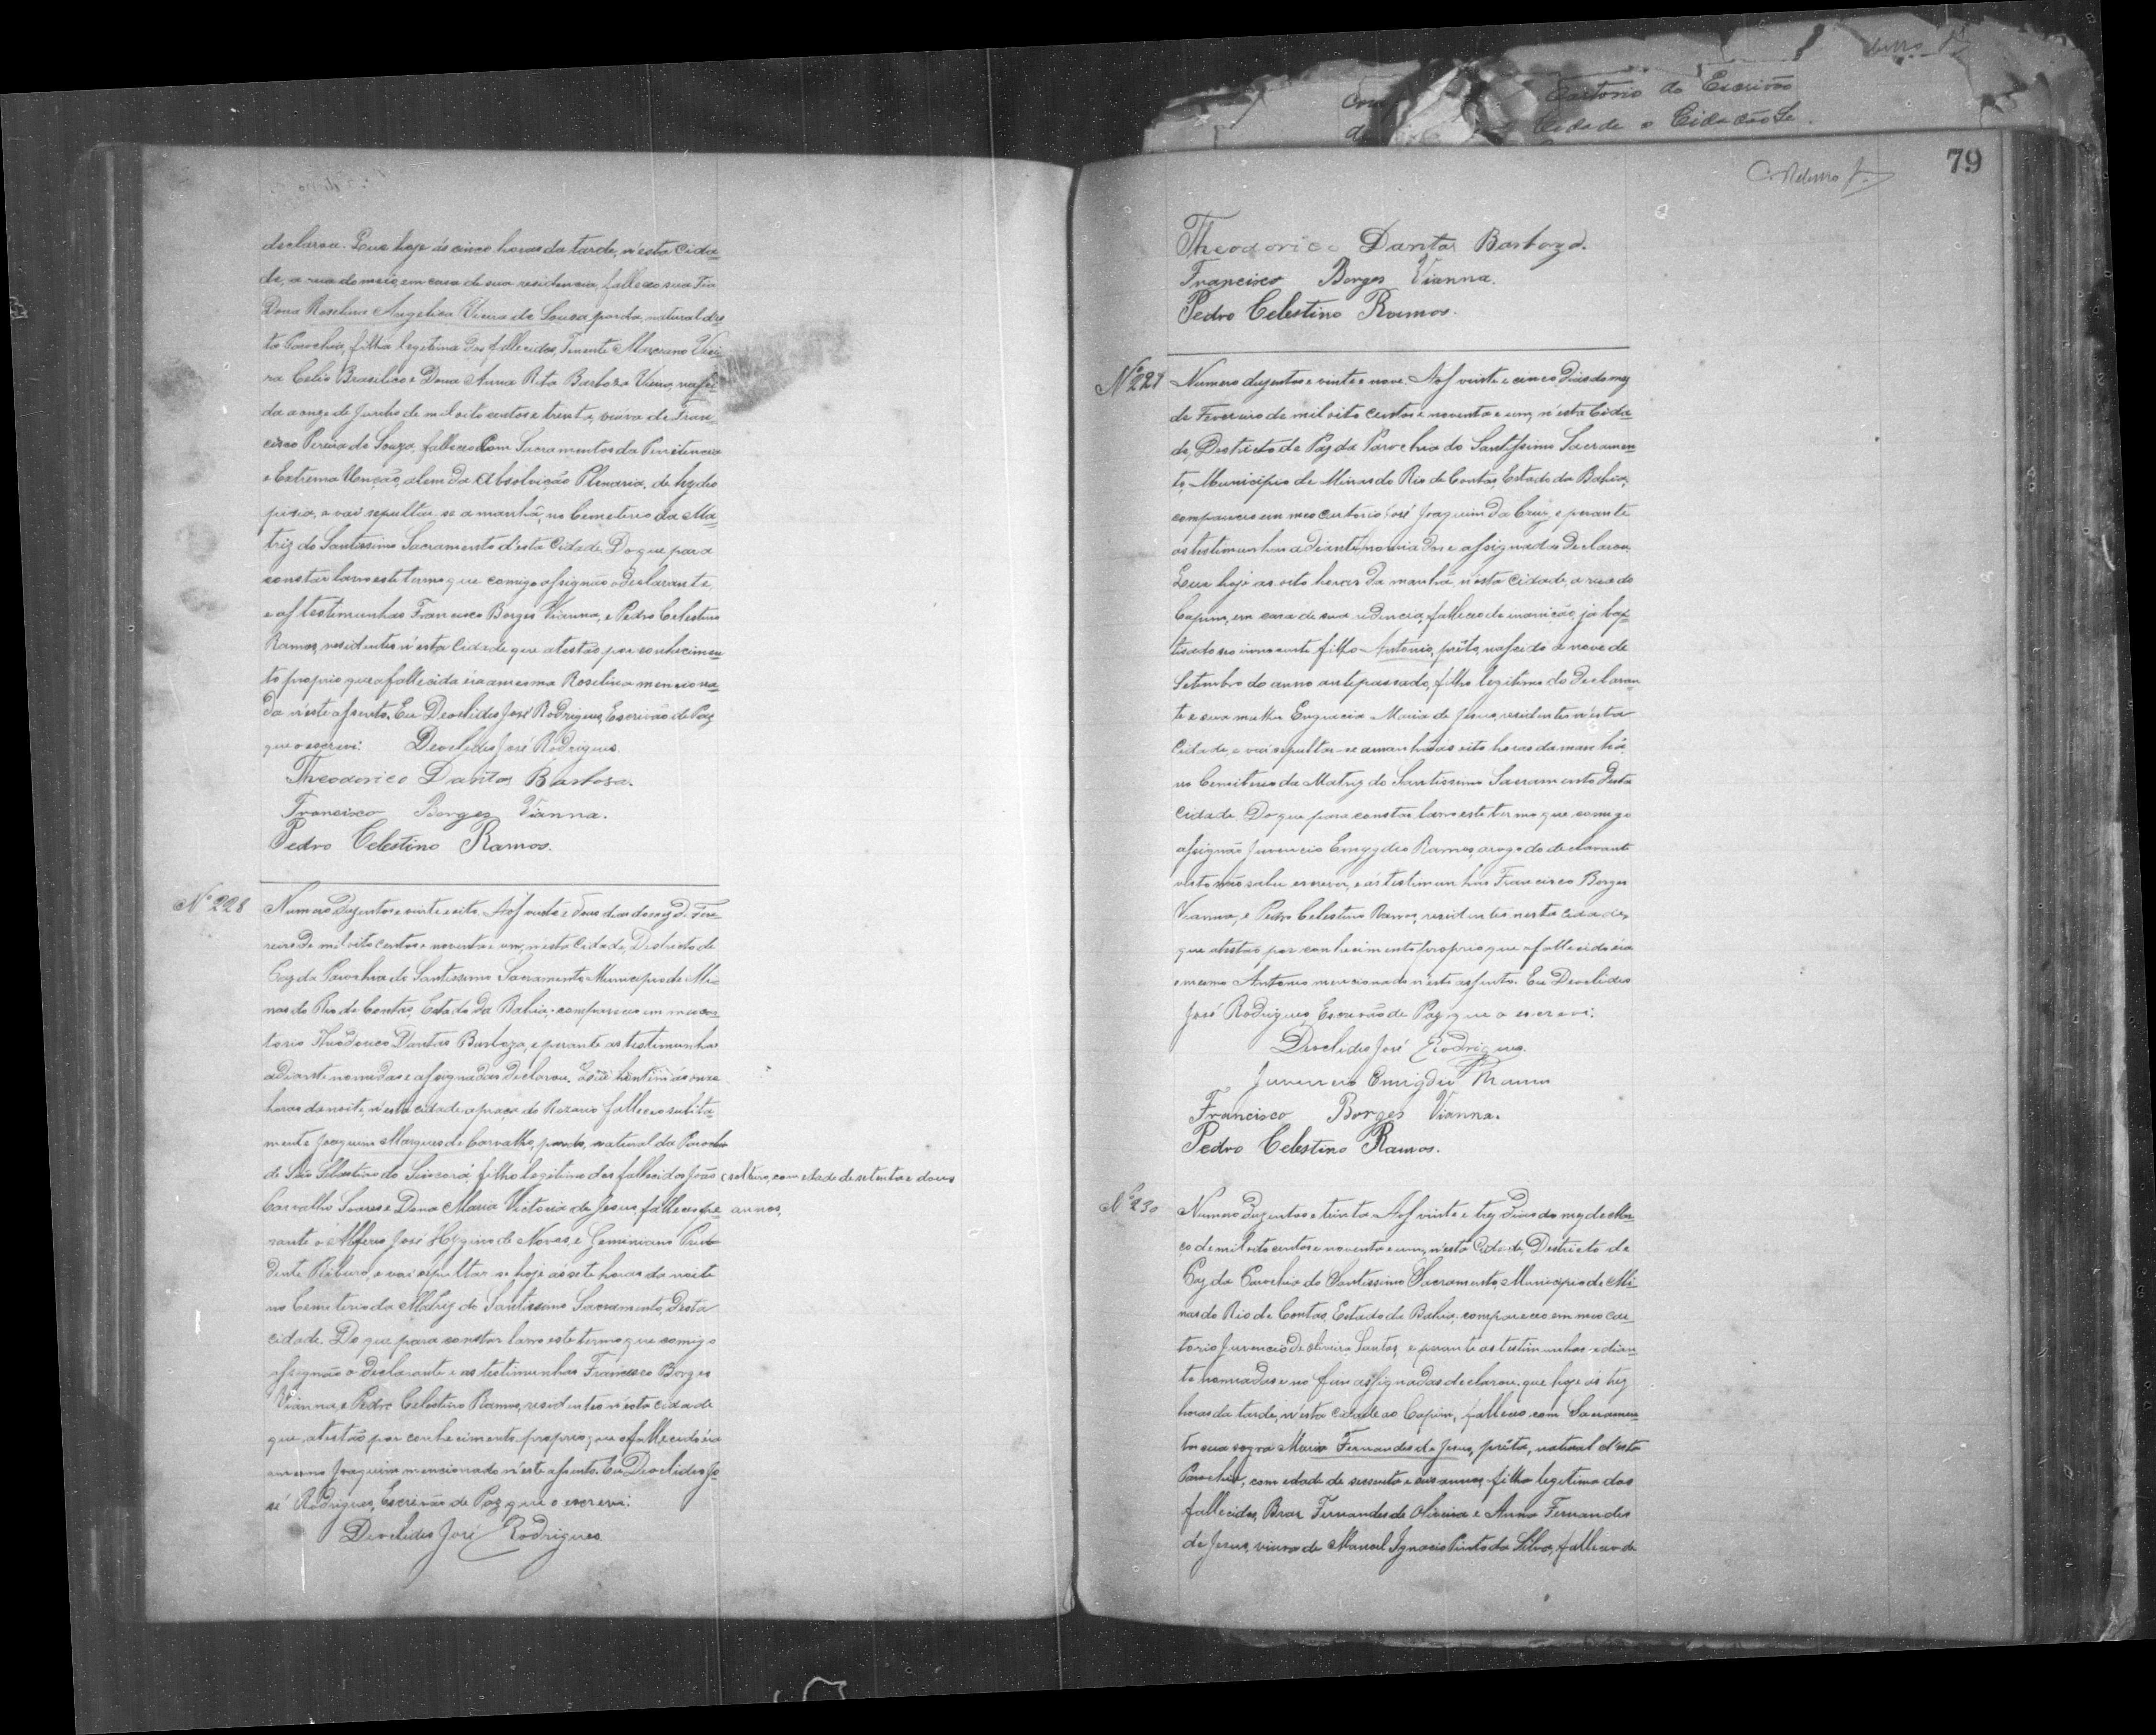 declarou. Que hoje ás cinco horas da tarde, n'esta Cida-
de, a rua do meio, em casa de sua residencia, falleceo sua Tia
Dona Roselina Angelica Vieira de Souza, parda, natural des-
ta Parochia, filha legitima dos fallecidos, Tenente Marciano Viei-
ra Celio Brasilico e Dona Anna Rita Barboza Vieira, nasci-
da a onze de Junho de mil oito centos e trinta, viuva de Fran-
cisco Pereira de Souza, falleceo Com Sacramentos da Penitencia
e Extrema Unção, alem da Absolvição Plenaria, de hydro
pesia, e vai sepultar-se amanhã, no Cemeterio da Ma-
triz do Santissimo Sacramento d'esta Cidade. Do que para
constar lavro este termo que comigo assignão o declarante,
e as testimunhas Francisco Borges Vianna, e Pedro Celestino
Ramos, residentes n'esta Cidade que atestão por conhecimen-
to proprio que a fallecida era a mesma Roselina menciona-
da n'este assento. Eu Deoclides José Rodrigues, Escrivão de Paz
que o escrevi. Deoclides José Rodrigues.
Theodorico Dantas Barbosa.
Francisco Borges Vianna.
Pedro Celestino Ramos.
Nº 228
Numero duzentos e vinte e oito. Aos vinte e dous dias do mez de Feve-
reiro de mil oito Centos e noventa e um, n'esta Cidade, Districto de
Paz da Parochia do Santissimo Sacramento, Municipio de Mi-
nas do Rio de Contas, Estado da Bahia, compareceo em meo car-
torio Theodorico Dantas Barboza, e perante as testimunhas
adiante nomeadas e assignadas declarou. Que hontem ás onze
horas da noite, n'esta cidade a praça do Rozario falleceo subita-
mente Joaquim Marques de Carvalho, pardo, natural da Parochia
de São Sebastião do Sincorá, filho legitimo dos fallecidos João (solteiro, com idade de setenta e dous
Carvalho Soares e Dona Maria Victoria de Jesus, falleceo pe- annos,
rante o Alferes José Hygino de Novaes, e Geminiano Pru-
dente e vai sepultar-se hoje ás sete horas da noite
no Cemeterio da Matriz do Santissimo Sacramento, desta
cidade. Do que para constar lavro este termo que comigo
assignão o declarante e as testimunhas Francisco Borges
Vianna, e Pedro Celestino Ramos, residentes n'esta cidade
que atestão por conhecimento proprio, que o fallecido éra
o mesmo Joaquim mencionado n'este assento. Eu Deoclides Jo-
sé Rodrigues, Escrivão de Paz que o escrevi.
Deoclides José Rodrigues
79
Theodorico Dantas Barboza.
Francisco Borges Vianna.
Pedro Celestino Ramos.
Nº 229
Numero duzentos e vinte e nove. Aos vinte e cinco dias do mez
de Fevereiro de mil oito Centos e noventa e um, n'esta Cida-
de, Districto de Paz da Parochia do Santissimo Sacramen-
to, Municipio de Minas do Rio de Contas, Estado da Bahia,
compareceo em meo cartorio José Joaquim da Cruz, e perante
as testimunhas adiante nomiadas e assignadas declarou.
Que hoje as oito horas da manhã, n'esta Cidade, a rua do
Capim, em casa de sua redencia, falleceo de inanição, já bap-
tisado seo innocente filho Antonio, prêto, nascido á nove de
Setembro do anno antepassado, filho legitimo do declaran-
te e sua mulher Engracia Maria de Jesus, residentes n'esta
Cidade, e vai sepultar-se amanhã as oito horas da manhã,
no Cemiterio da Matriz do Santissimo Sacramento desta
Cidade. Do que para constar lavro este termo que comigo
assignão Juvencio Emygdio Ramos, a rogo do declarante
visto não saber escrever, e as testimunhas Francisco Borges
Vianna, e Pedro Celestino Ramos, residentes nesta cidade,
que atestão por conhecimento proprio que o fallecido éra
o mesmo Antonio mencionado n'este assento. Eu Deoclides
José Rodrigues, Escrivão de Paz que o escrevi.
Deoclides José Rodrigues.
Juvencio Emigdio Ramos
Francisco Borges Vianna.
Pedro Celestino Ramos.
Nº 230
Numero duzentos e trinta. Aos vinte e trez dias do mez de Mar-
ço de mil oito centos e noventa e um, n'esta Cidade, Destricto de
Paz da Parochia do Santissimo Sacramento, Municipio de Mi-
nas do Rio de Contas, Estado da Bahia, compareceo em meo car-
torio Juvencio de Oliveira Santos, e perante as testimunhas adian-
te nomiadas e no fim assignadas declarou, que hoje ás trez
horas da tarde, n'esta cidade ao Capim, falleceo com Sacramen-
tos sua sogra Maria Fernandes de Jesus, prêta, natural d'esta
Parochia, com edade de sessenta e seis annos, filha legitima dos
fallecidos, Braz Fernandes de Oliveira e Anna Fernandes
de Jesus, viuva de Manoel Ignacio Pinto da Silva, falleceo de